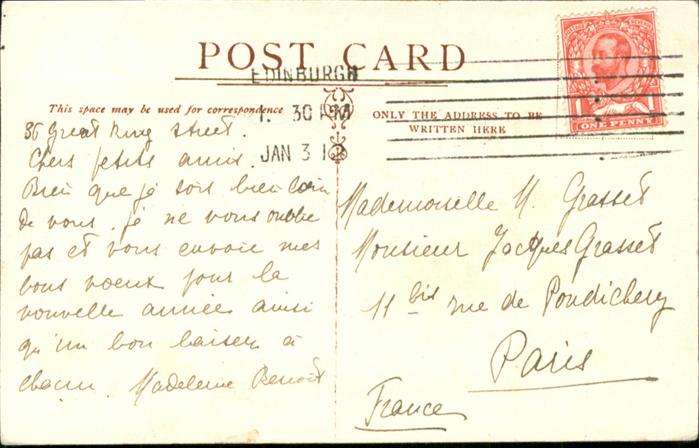 POST CARD
EDINBURGH
1. 30 AM
JAN 3 1
ONE PENNY
This space may be used for correspondence
ONLY THE ADDRESS TO BE
WRITTEN HERE
36 Great King Street.
Chers petits amis.
Bien que je sois bien loin
de vous je ne vous oublie
pas et vous envoie mes
bons voeux pour la
nouvelle année ainsi
qu'un bon baiser à
chacun. Madeleine Benoit
Mademoiselle M. Grasset
Monsieur Jacques Grasset
11 bis rue de Pondichery
Paris
France